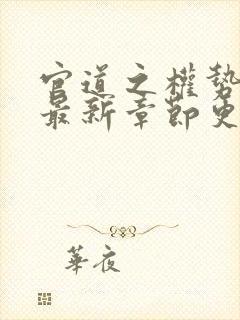 官道之權勢
最新章節更
華夜